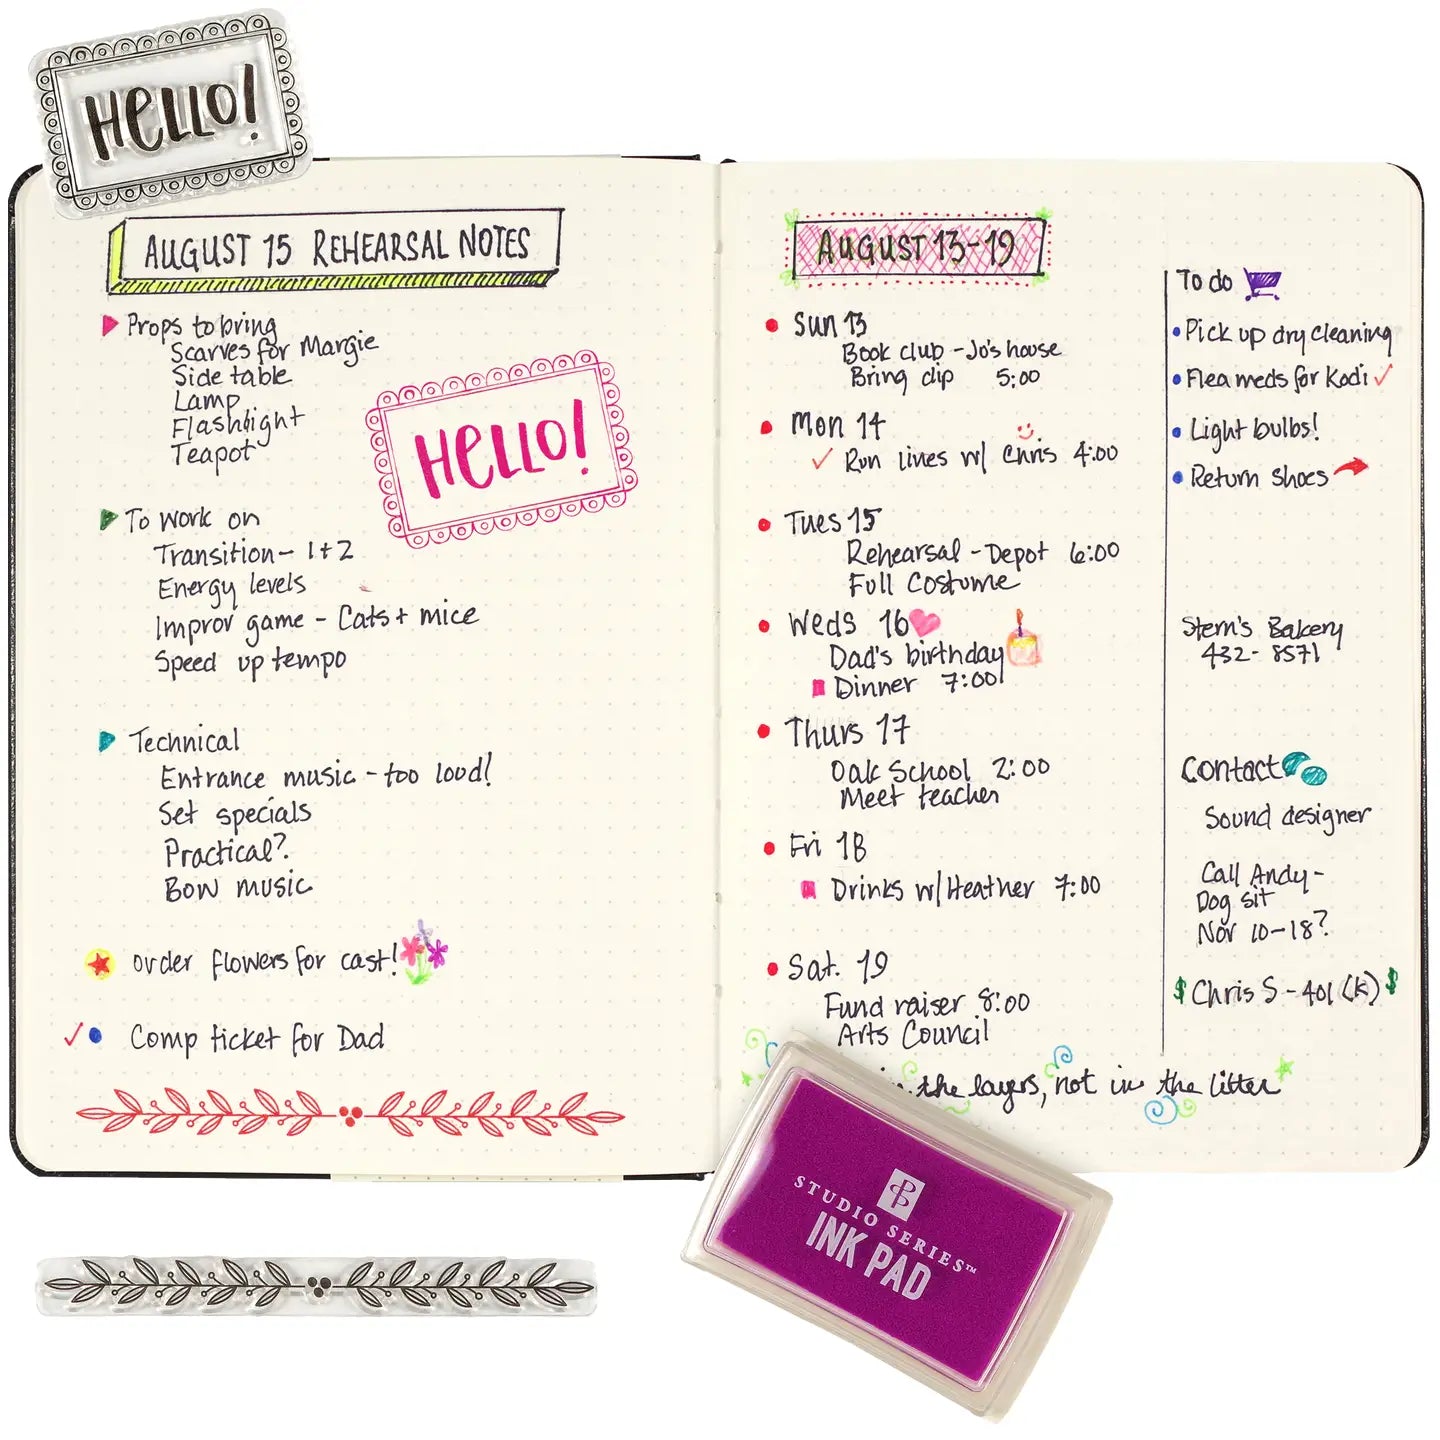 HELLO!
AUGUST 15 REHEARSAL NOTES
Props to bring
Scarves for Margie
Side table
Lamp
Flashlight
Teapot
HELLO!
To work on
Transition - 1+2
Energy levels
Improv game - Cats + mice
Speed up tempo
Technical
Entrance music - too loud!
Set specials
Practical?
Bow music
order flowers for cast!
Comp ticket for Dad
AUGUST 13-19
Sun 13
Book club - Jo's house
Bring dip 5:00
Mon 14
Run lines w/ Chris 4:00
Tues 15
Rehearsal - Depot 6:00
Full Costume
Weds 16
Dad's birthday
Dinner 7:00
Thurs 17
Oak School 2:00
Meet teacher
Fri 18
Drinks w/ Heather 7:00
Sat. 19
Fund raiser 8:00
Arts Council
in the layers, not in the litter
To do
Pick up dry cleaning
Flea meds for Kodi
Light bulbs!
Return shoes
Stern's Bakery
432-8571
Contact
Sound designer
Call Andy -
Dog sit
Nov 10-18?
$ Chris S - 401(K) $
STUDIO SERIES™
INK PAD